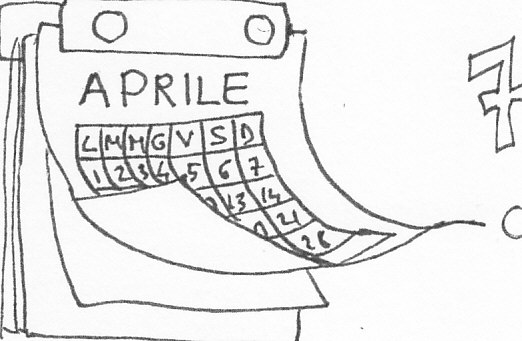 APRILE
L M M G V S D
1 2 3 4 5 6 7
13 14
21
28
7